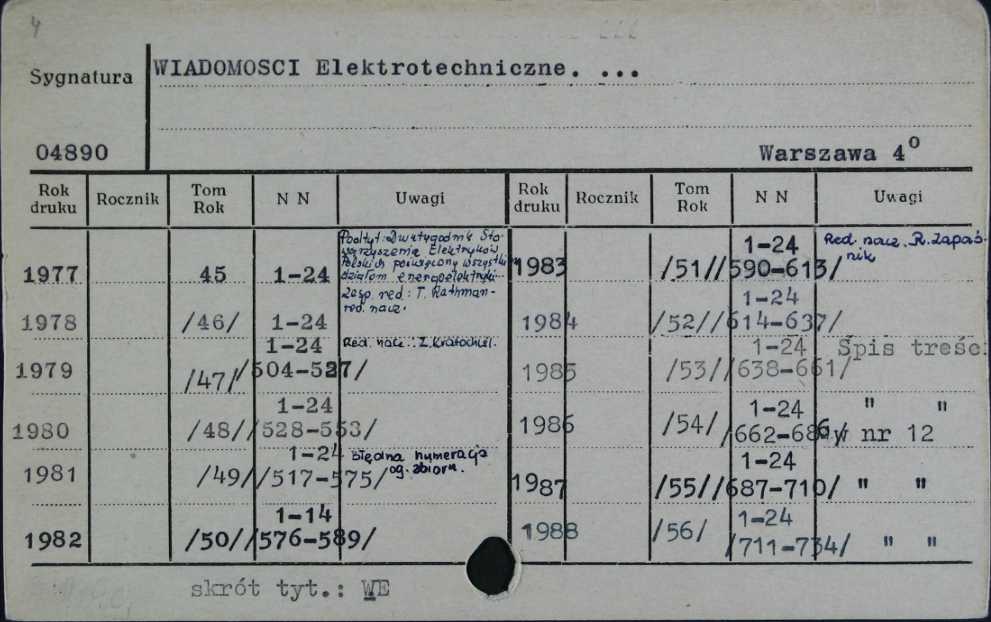 4
Sygnatura
WIADOMOSCI Elektrotechniczne. ...
04890
Warszawa 4°
Rok druku Rocznik Tom Rok N N Uwagi Rok druku Rocznik Tom Rok N N Uwagi
1977 45 1-24
Podtyt: Dwutygodnik Sto-
warzyszenia Elektryków
Polskich poświęcony wszystkim
działom energoelektryki
Zesp. red.: T. Rathman-
red. nacz.
1978 /46/ 1-24
1-24 Red. nacz.:
1979 /47/ /504-527/
1-24
1980 /48/ /528-553/
1-24 błędna numeracja
og. zbioru.
1981 /49/ /517-575/
1-14
1982 /50/ /576-589/
1-24 Red. nacz. R. Zapaś-
nik
1983 /51/ /590-613/
1-24
1984 /52/ /614-637/
1-24 Spis treści
1985 /53/ /638-661/
1-24 " "
1986 /54/ /662-686/ w nr 12
1-24
1987 /55/ /687-710/ " "
1-24
1988 /56/ /711-734/ " "
skrót tyt.: WE